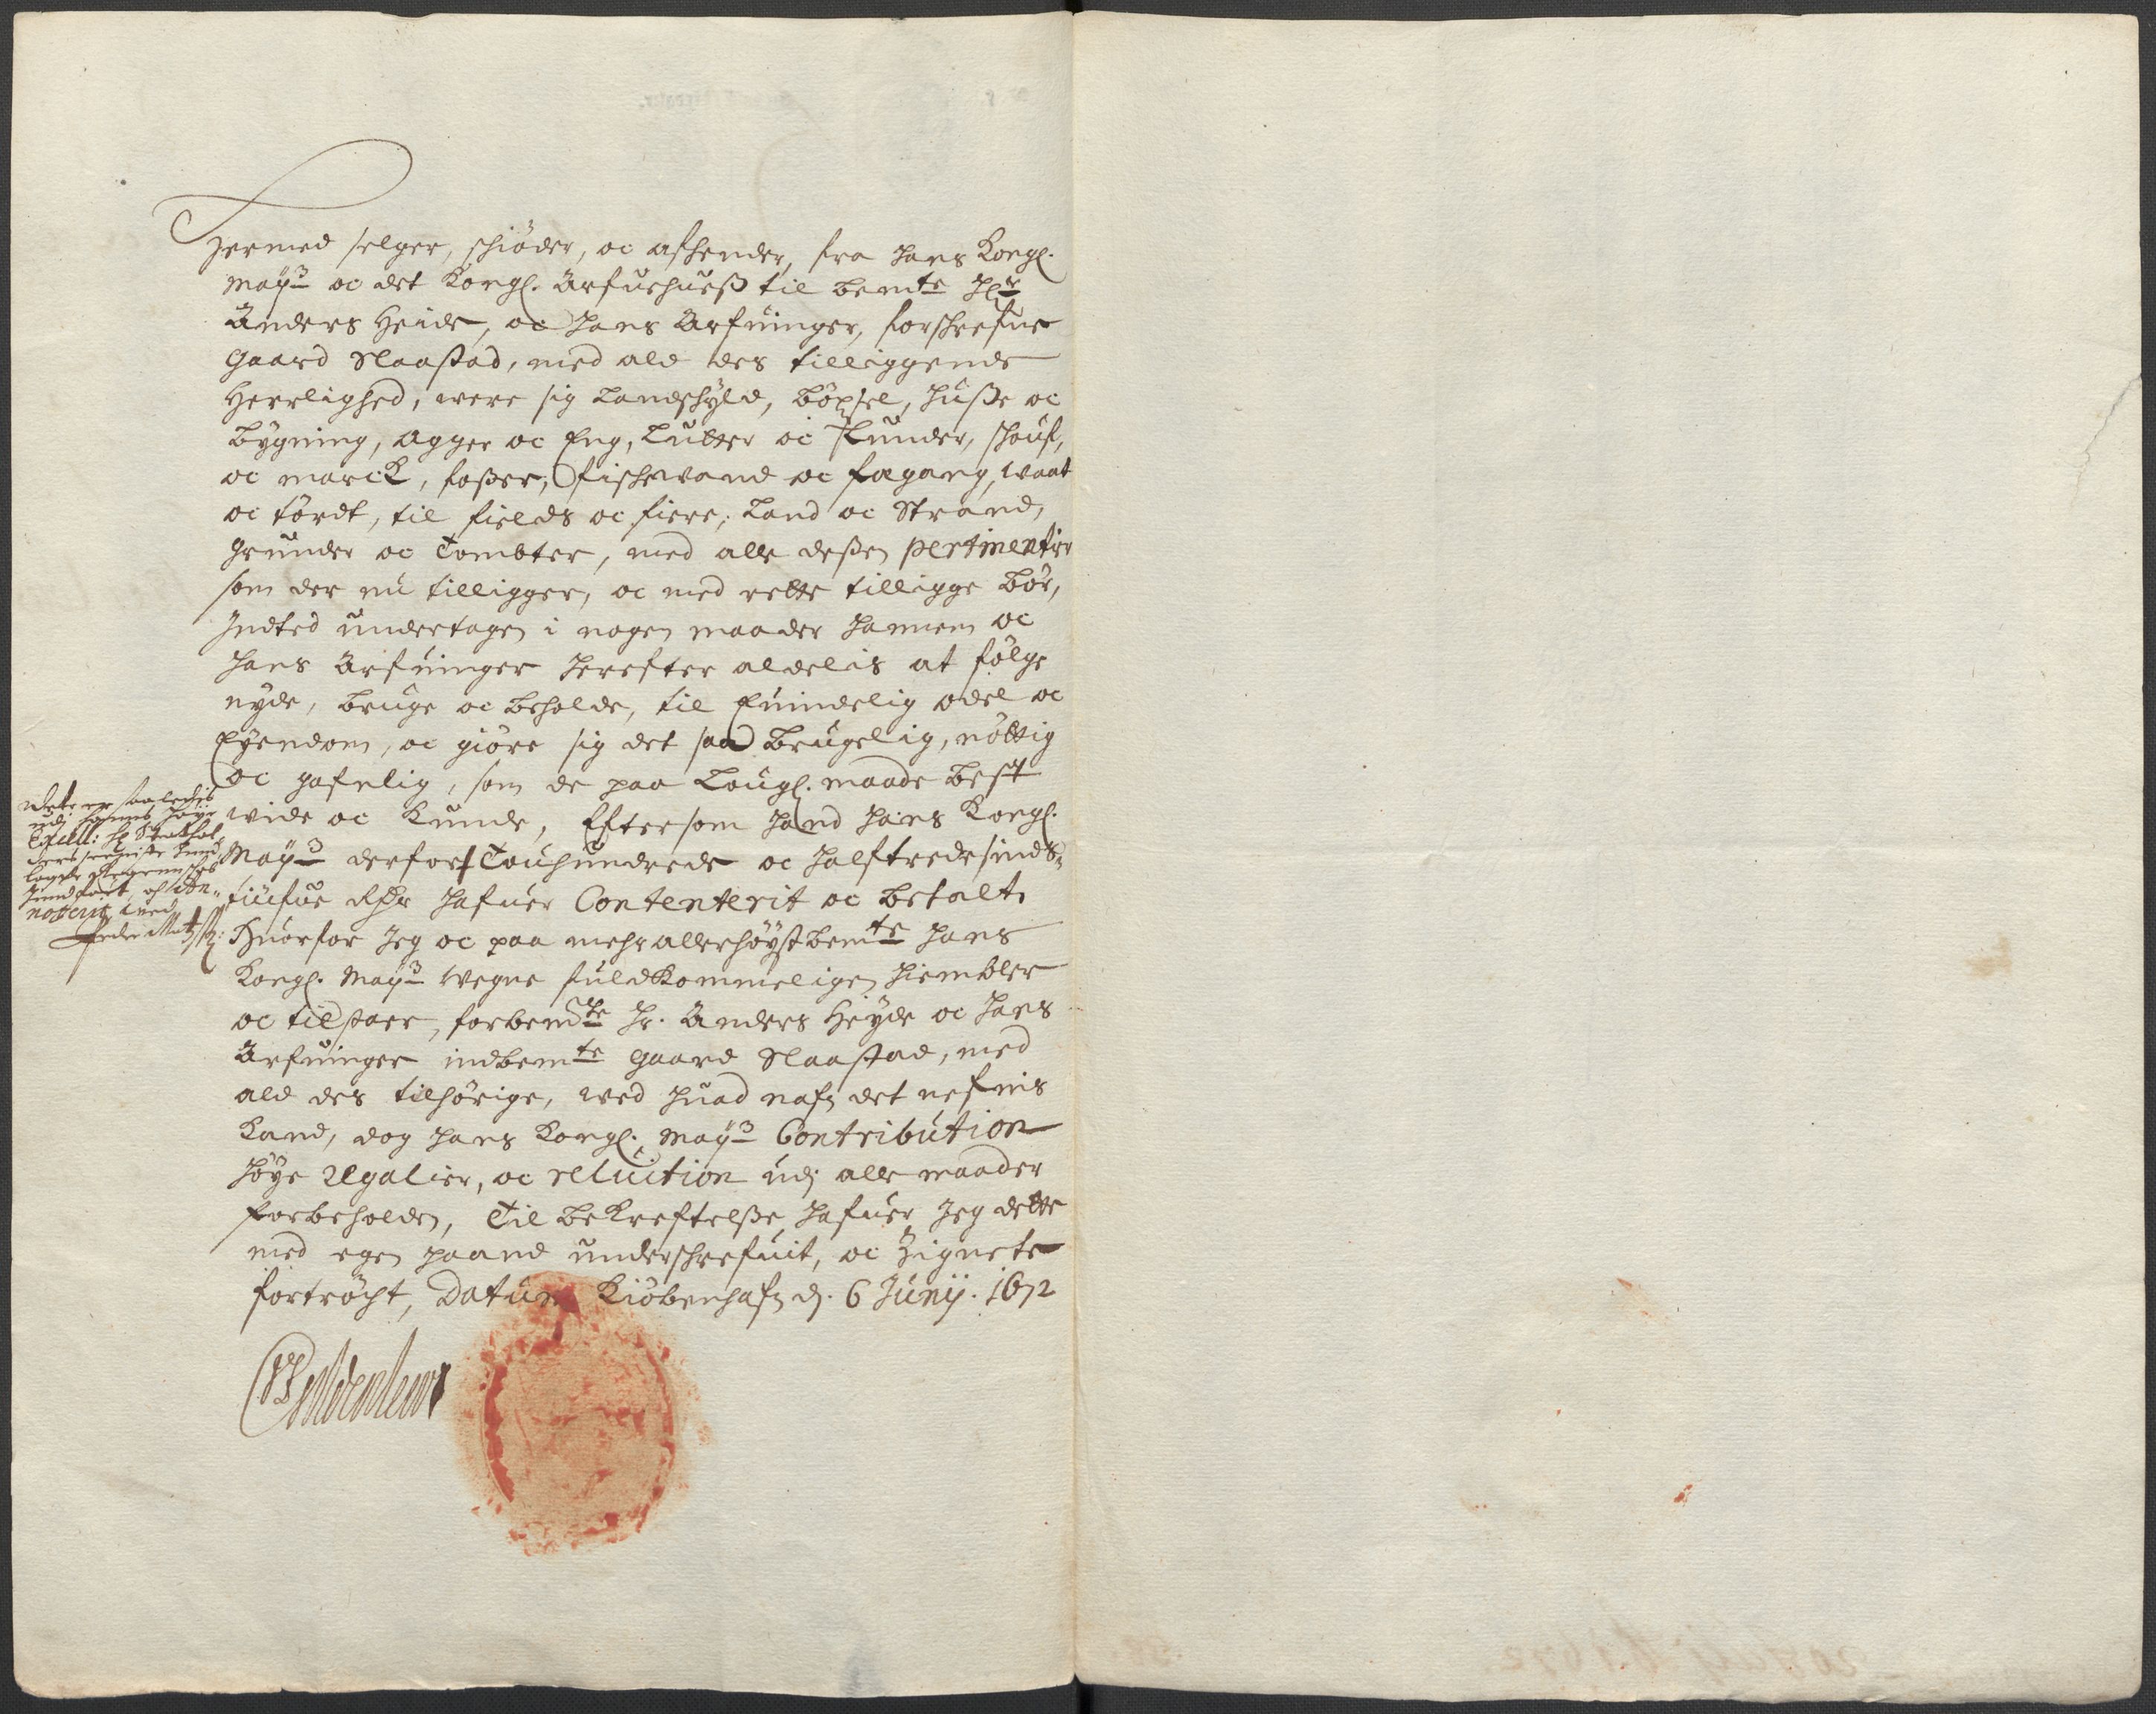 Hermed selger, schiöder, oc afhender, fra Hans Kongl.
Mayts oc det Kongl. Arfuehuuß til bemte Hr
Anders Heide, oc Hans Arfuinger, forschrefne
Gaard Slaastad, med ald des tilliggende
Herrlighed, were sig Landschyld, böxsel, Huße oc
bygning, agger oc Eng, Lutter oc Lunder, schouf,
oc marck, foßer, fischevand oc fægang, waat
oc tördt, til fields oc fiere, Land oc Strand,
Grunder oc Tombter, med alle deßen pertinentier
som der nu tilligger, oc med rette tilligge bör,
Indted undertagen i nogen maader Hannem oc
Hans Arfuinger Herefter aldelis at fölge
nyde, bruge oc beholde, til Euindelig odel oc
Eyendom, oc giöre sig det saa brugelig, nöttig
oc gafnlig, som de paa Lougl. maade best
wide oc Kunde, Eftersom Hand Hans Kongl.
Mayts derfor Touhundrede oc Halftredesinds-
tiufue Rdr Hafuer Contenterit oc betalt,
Huorfor Jeg oc paa mehr allerhöystbemte Hans
Kongl. Mayts Wegne fuldkommeligen Hiembler
oc tilstaar, forbemte Hr. Anders Heyde oc Hans
Arfuinger indbemte gaard Slaastad, med
ald des tilhörige, wed Huad nafn det nefnis
Kand, dog Hans Kongl. Mayts Contribution
Höye Regalier, oc reluition udj alle maader
forbeholden, Til bekreftelße Hafuer Jeg dette
med egen Haand underschrefuit, oc Zignete
fortröcht, Datum Kiöbenhafn dj. 6 Junij. 1672
UFGuldenlew
Dette er saaledis
udj Hannes Höye
Excell: Hr Statthol